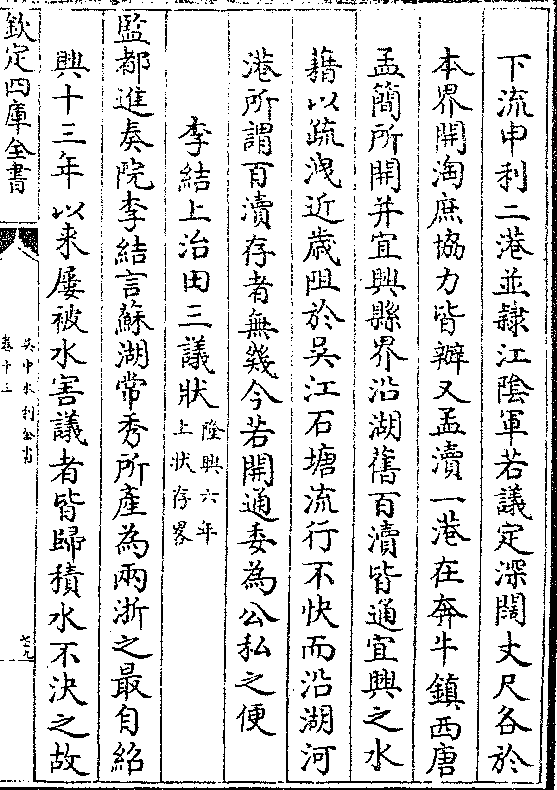 下流申利二港並隷江隂軍若議定深闊丈尺各於
本界開淘庶協力皆辦又孟瀆一港在奔牛鎮西唐
孟簡所開并宜興縣界沿湖舊百瀆皆通宜興之水
藉以疏洩近歳阻於吳江石塘流行不快而沿湖河
港所謂百瀆存者無幾今若開通委為公私之便
李結上治田三議狀隆興六年
上狀存畧
監都進奏院李結言蘇湖常秀所產為兩浙之最自紹
興十三年以来屢被水害議者皆歸積水不決之故
欽定四庫全書
吳中水利全書
卷十三